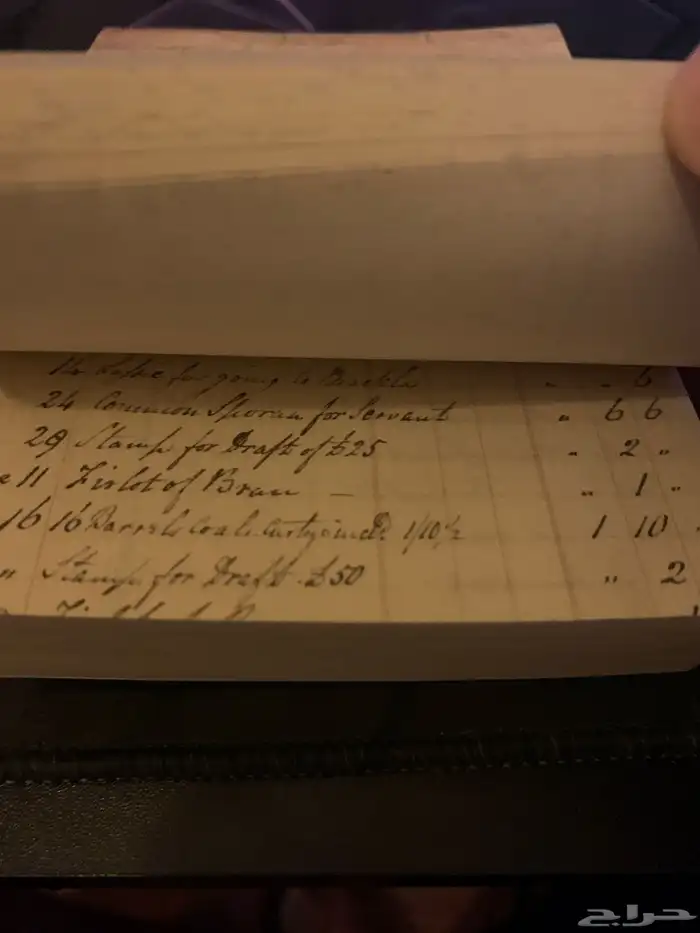 14 for going to " " 6
24 Common Sporran for Servant " 6 6
29 Stamp for Draft of £25 " 2 "
11 Firlot of Bran — " 1 "
16 16 Barrels Coals 1/10½ 1 10
" Stamp for Draft £50 " 2
حراج